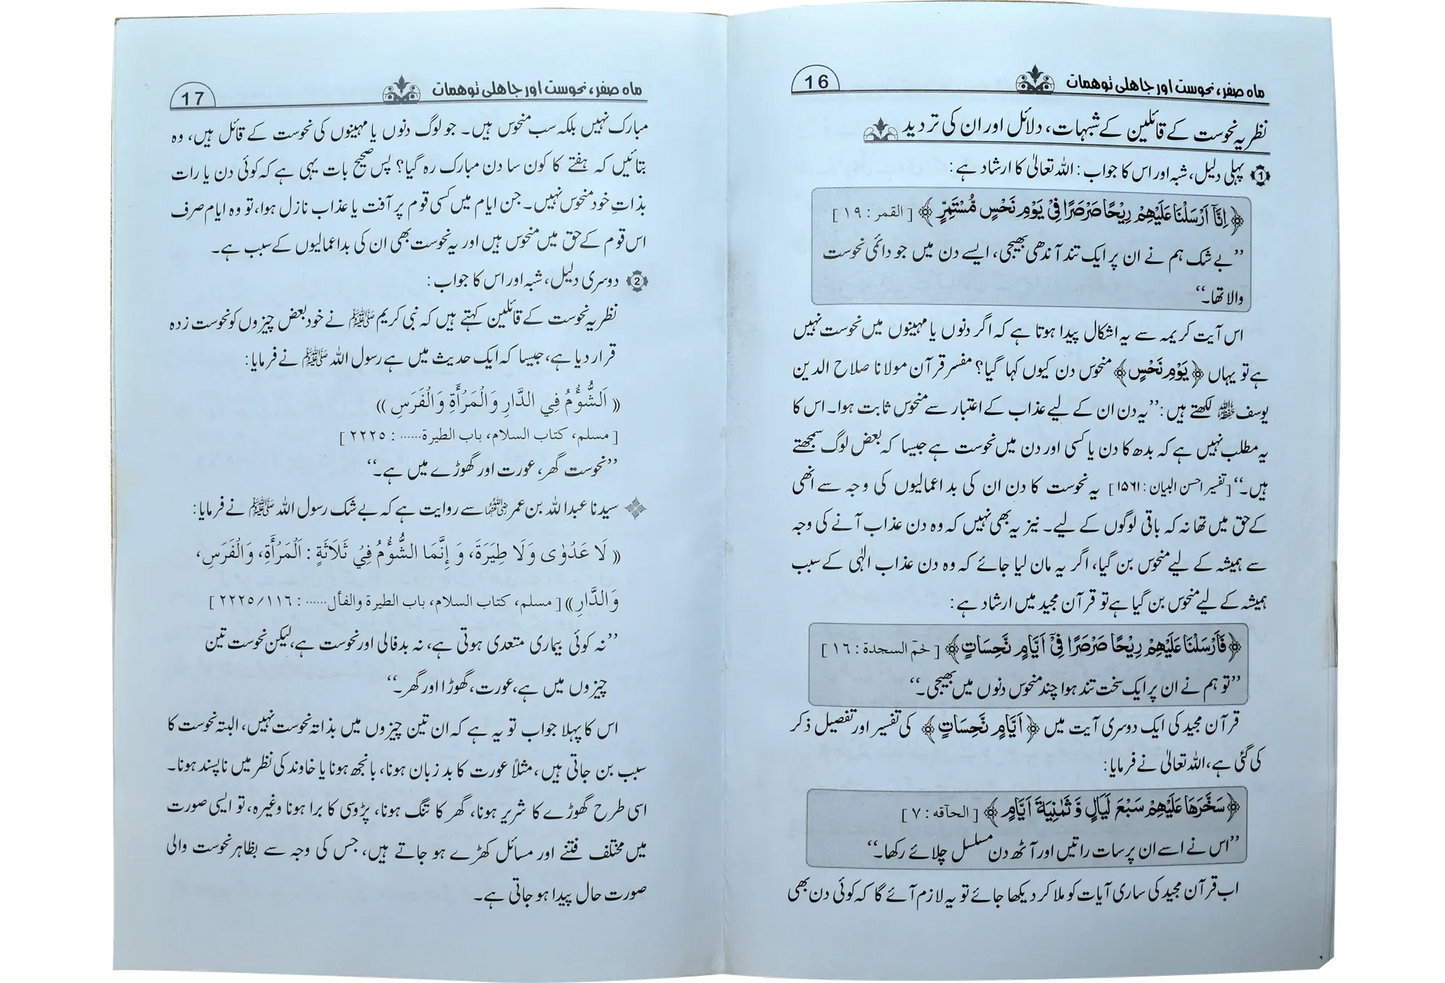 ماہ صفر، نحوست اور جاھلی توھمات 16
نظریہ نحوست کے قائلین کے شبہات، دلائل اور ان کی تردید
1 پہلی دلیل، شبہ اور اس کا جواب: اللہ تعالیٰ کا ارشاد ہے:
﴿اِنَّآ اَرْسَلْنَا عَلَيْهِمْ رِيْحًا صَرْصَرًا فِيْ يَوْمِ نَحْسٍ مُّسْتَمِرٍّ﴾ [القمر: ١٩]
’’بے شک ہم نے ان پر ایک تند آندھی بھیجی، ایسے دن میں جو دائمی نحوست
والا تھا۔‘‘
اس آیت کریمہ سے یہ اشکال پیدا ہوتا ہے کہ اگر دنوں یا مہینوں میں نحوست نہیں
ہے تو یہاں ﴿يَوْمِ نَحْسٍ﴾ منحوس دن کیوں کہا گیا؟ مفسر قرآن مولانا صلاح الدین
یوسف ﷾ لکھتے ہیں: ’’یہ دن ان کے لیے عذاب کے اعتبار سے منحوس ثابت ہوا۔ اس کا
یہ مطلب نہیں ہے کہ بدھ کا دن یا کسی اور دن میں نحوست ہے جیسا کہ بعض لوگ سمجھتے
ہیں۔‘‘ [تفسیر احسن البیان: ۱۵۶۱] یہ نحوست کا دن ان کی بد اعمالیوں کی وجہ سے انھی
کے حق میں تھا نہ کہ باقی لوگوں کے لیے۔ نیز یہ بھی نہیں کہ وہ دن عذاب آنے کی وجہ
سے ہمیشہ کے لیے منحوس بن گیا، اگر یہ مان لیا جائے کہ وہ دن عذاب الٰہی کے سبب
ہمیشہ کے لیے منحوس بن گیا ہے تو قرآن مجید میں ارشاد ہے:
﴿فَاَرْسَلْنَا عَلَيْهِمْ رِيْحًا صَرْصَرًا فِيْٓ اَيَّامٍ نَّحِسَاتٍ﴾ [حٰمٓ السجدة: ١٦]
’’تو ہم نے ان پر ایک سخت تند ہوا چند منحوس دنوں میں بھیجی۔‘‘
قرآن مجید کی ایک دوسری آیت میں ﴿اَيَّامٍ نَّحِسَاتٍ﴾ کی تفسیر اور تفصیل ذکر
کی گئی ہے، اللہ تعالیٰ نے فرمایا:
﴿سَخَّرَهَا عَلَيْهِمْ سَبْعَ لَيَالٍ وَّ ثَمٰنِيَةَ اَيَّامٍ﴾ [الحآقه: ٧]
’’اس نے اسے ان پر سات راتیں اور آٹھ دن مسلسل چلائے رکھا۔‘‘
اب قرآن مجید کی ساری آیات کو ملا کر دیکھا جائے تو یہ لازم آئے گا کہ کوئی دن بھی
ماہ صفر، نحوست اور جاھلی توھمات 17
مبارک نہیں بلکہ سب منحوس ہیں۔ جو لوگ دنوں یا مہینوں کی نحوست کے قائل ہیں، وہ
بتائیں کہ ہفتے کا کون سا دن مبارک رہ گیا؟ پس صحیح بات یہی ہے کہ کوئی دن یا رات
بذاتِ خود منحوس نہیں۔ جن ایام میں کسی قوم پر آفت یا عذاب نازل ہوا، تو وہ ایام صرف
اس قوم کے حق میں منحوس ہیں اور یہ نحوست بھی ان کی بد اعمالیوں کے سبب ہے۔
2 دوسری دلیل، شبہ اور اس کا جواب:
نظریہ نحوست کے قائلین کہتے ہیں کہ نبی کریم ﷺ نے خود بعض چیزوں کو نحوست زدہ
قرار دیا ہے، جیسا کہ ایک حدیث میں ہے رسول اللہ ﷺ نے فرمایا:
(( اَلشُّؤْمُ فِي الدَّارِ وَالْمَرْأَةِ وَالْفَرَسِ ))
[مسلم، كتاب السلام، باب الطيرة......: ٢٢٢٥]
’’نحوست گھر، عورت اور گھوڑے میں ہے۔‘‘
سیدنا عبد اللہ بن عمر رضی اللہ عنہما سے روایت ہے کہ بے شک رسول اللہ ﷺ نے فرمایا:
(( لَا عَدْوٰى وَلَا طِيَرَةَ، وَ إِنَّمَا الشُّؤْمُ فِيْ ثَلَاثَةٍ: اَلْمَرْأَةِ، وَالْفَرَسِ،
وَالدَّارِ)) [مسلم، كتاب السلام، باب الطيرة والفأل......: ١١٦/٢٢٢٥]
’’نہ کوئی بیماری متعدی ہوتی ہے، نہ بدفالی اور نحوست ہے، لیکن نحوست تین
چیزوں میں ہے، عورت، گھوڑا اور گھر۔‘‘
اس کا پہلا جواب تو یہ ہے کہ ان تین چیزوں میں بذاتہ نحوست نہیں، البتہ نحوست کا
سبب بن جاتی ہیں، مثلاً عورت کا بد زبان ہونا، بانجھ ہونا یا خاوند کی نظر میں ناپسند ہونا۔
اسی طرح گھوڑے کا شریر ہونا، گھر کا تنگ ہونا، پڑوسی کا برا ہونا وغیرہ، تو ایسی صورت
میں مختلف فتنے اور مسائل کھڑے ہو جاتے ہیں، جس کی وجہ سے بظاہر نحوست والی
صورت حال پیدا ہو جاتی ہے۔